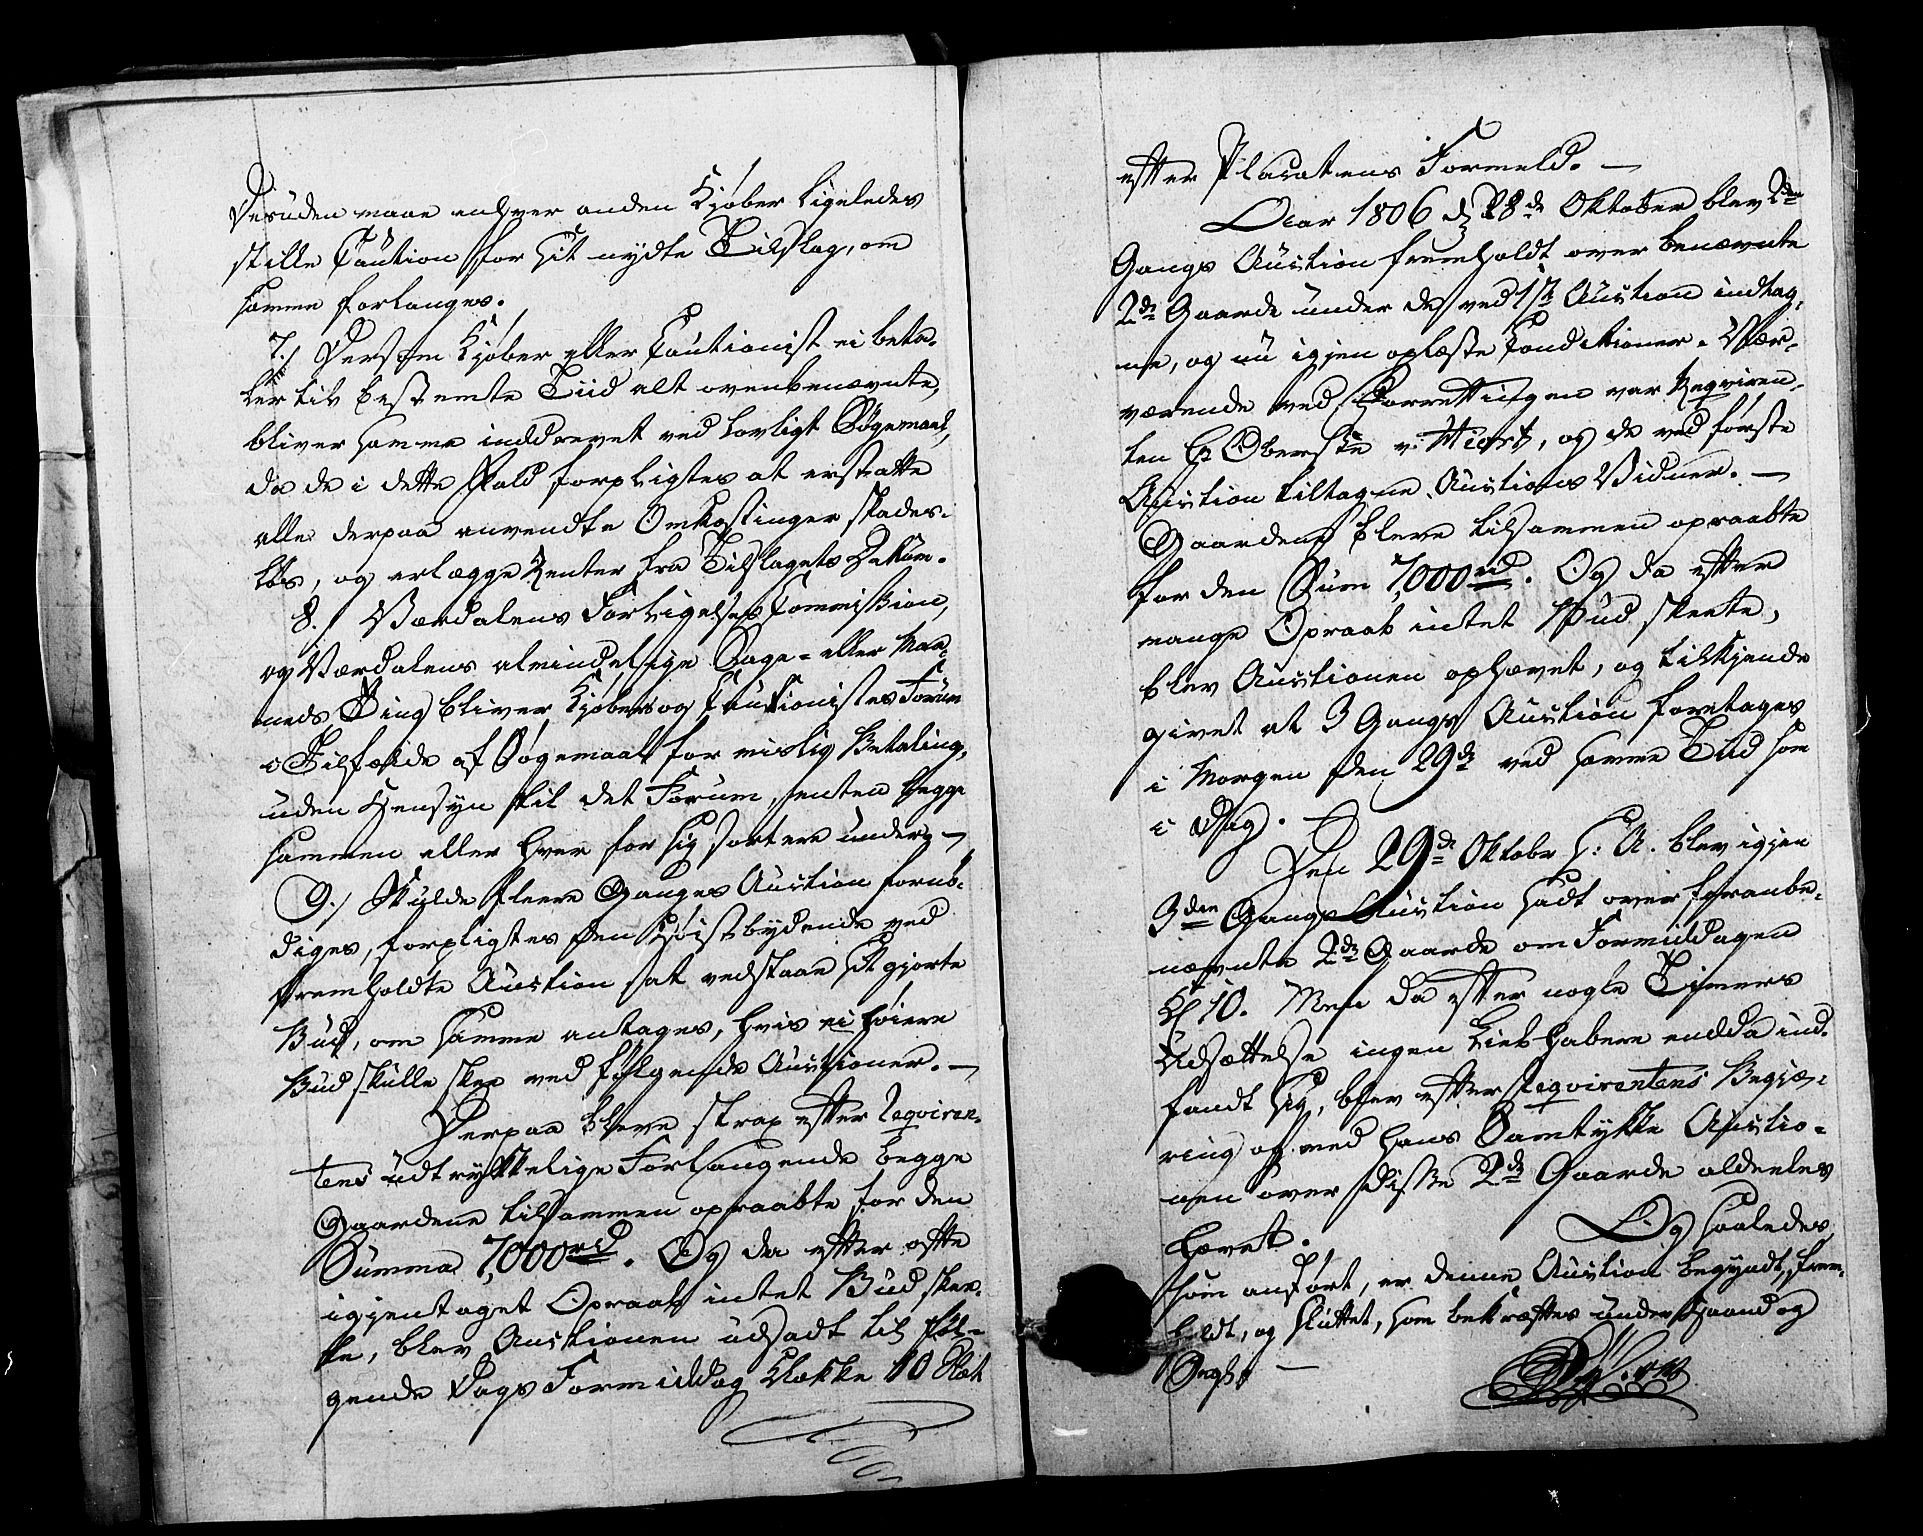 Desuden maae enhver anden Kjøber ligeledes
stille Caution for sit nydte Tilslag, om
samme forlanges.
7./ Dersom Kjøber eller Cautionist ei beta-
ler til bestemte Tiid alt ovenbenævnte,
bliver samme inddrevet ved lovligt Søgemaal,
da de i dette Fald forpligtes at erstatte
alle derpaa anvendte Omkostinger skades-
løs, og erlægge Renter fra Tilslagets Datum.
8./ Værdalens Forligelses Commission,
og Værdalens almindelige Sage- eller Maa-
neds Ting bliver Kjøbers og Cautionistes Forum
i Tilfælde af Søgemaal for mislig Betaling,
uden Hensyn til det Forum, enten begge
sammen eller hver for sig sortere under. —
9./ Skulde fleere Ganges Auction fornø-
diges, forpligtes den Høistbydende ved
fremholdte Auction at vedstaae sit gjorte
Bud, om samme antages, hvis ei høiere
Bud skulle skee ved følgende Auctioner. —
Derpaa bleve strax efter Reqviren-
tens udtrykkelige Forlangende begge
Gaardene tilsammen opraabte for den
Summa 7,000 rd. Og da efter ofte
igjentaget Opraab intet Bud skee-
te, blev Auctionen udsadt til føl-
gende Dags Formiddag Klokke 10 Slæt
efter Placatens Formeld. —
Aar 1806 d. 28de Oktober blev 2den
Gangs Auction fremholdt over benævnte
2de Gaarde under de ved 1ste Auction indtag-
ne, og nu igjen oplæste Conditioner. Nær-
værende ved Forretningen var Reqviren-
ten Hr Oberste v: Hiort, og de ved første
Auction tiltagne Auctions Vidner. —
Gaardene bleve tilsammen opraabte
for den Sum 7,000 rd. Og da efter
mange Opraab intet Bud skeete,
blev Auctionen ophævet, og tilkjende
givet at 3 Gangs Auction foretages
i Morgen den 29de ved samme Tiid som
i Dag. —
Den 29de Oktobr h: A. blev igjen
3die Gangs Auction hadt over foranbe-
nævnte 2de Gaarde om Formiddagen
Kl 10. Men da efter nogle Timers
Udsættelse ingen Liebhabere endda ind-
fandt sig, blev efter Reqvirentens Begjæ-
ring og med hans Samtykke Auctio-
nen over disse 2de Gaarde aldeeles
hævet.
Og saaledes
som anført, er denne Auction begyndt, frem-
holdt, og sluttet, som bekræftes under Haand og
Segl. —